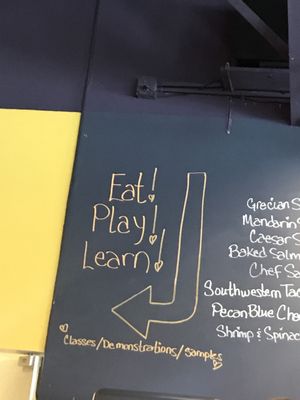 Eat!
Play!
Learn!
Classes/Demonstrations/Samples
Gracian
Mandarin
Caesar
Baked
Chef
Southwestern
Pecan Blue
Shrimp &